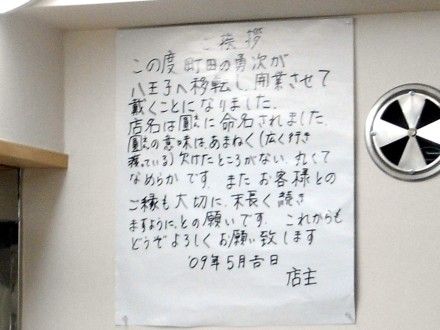 ご挨拶
この度町田の勇次が
八王子へ移転し開業させて
戴くことになりました.
店名は圓に命名されました.
圓の意味は、あまねく(広く行き
渡っている)欠けたところがない. 丸くて
なめらかです. また お客様との
ご縁も大切に、末長く続き
ますように、との願いです. これからも
どうぞよろしくお願い致します
'09年5月吉日
店主